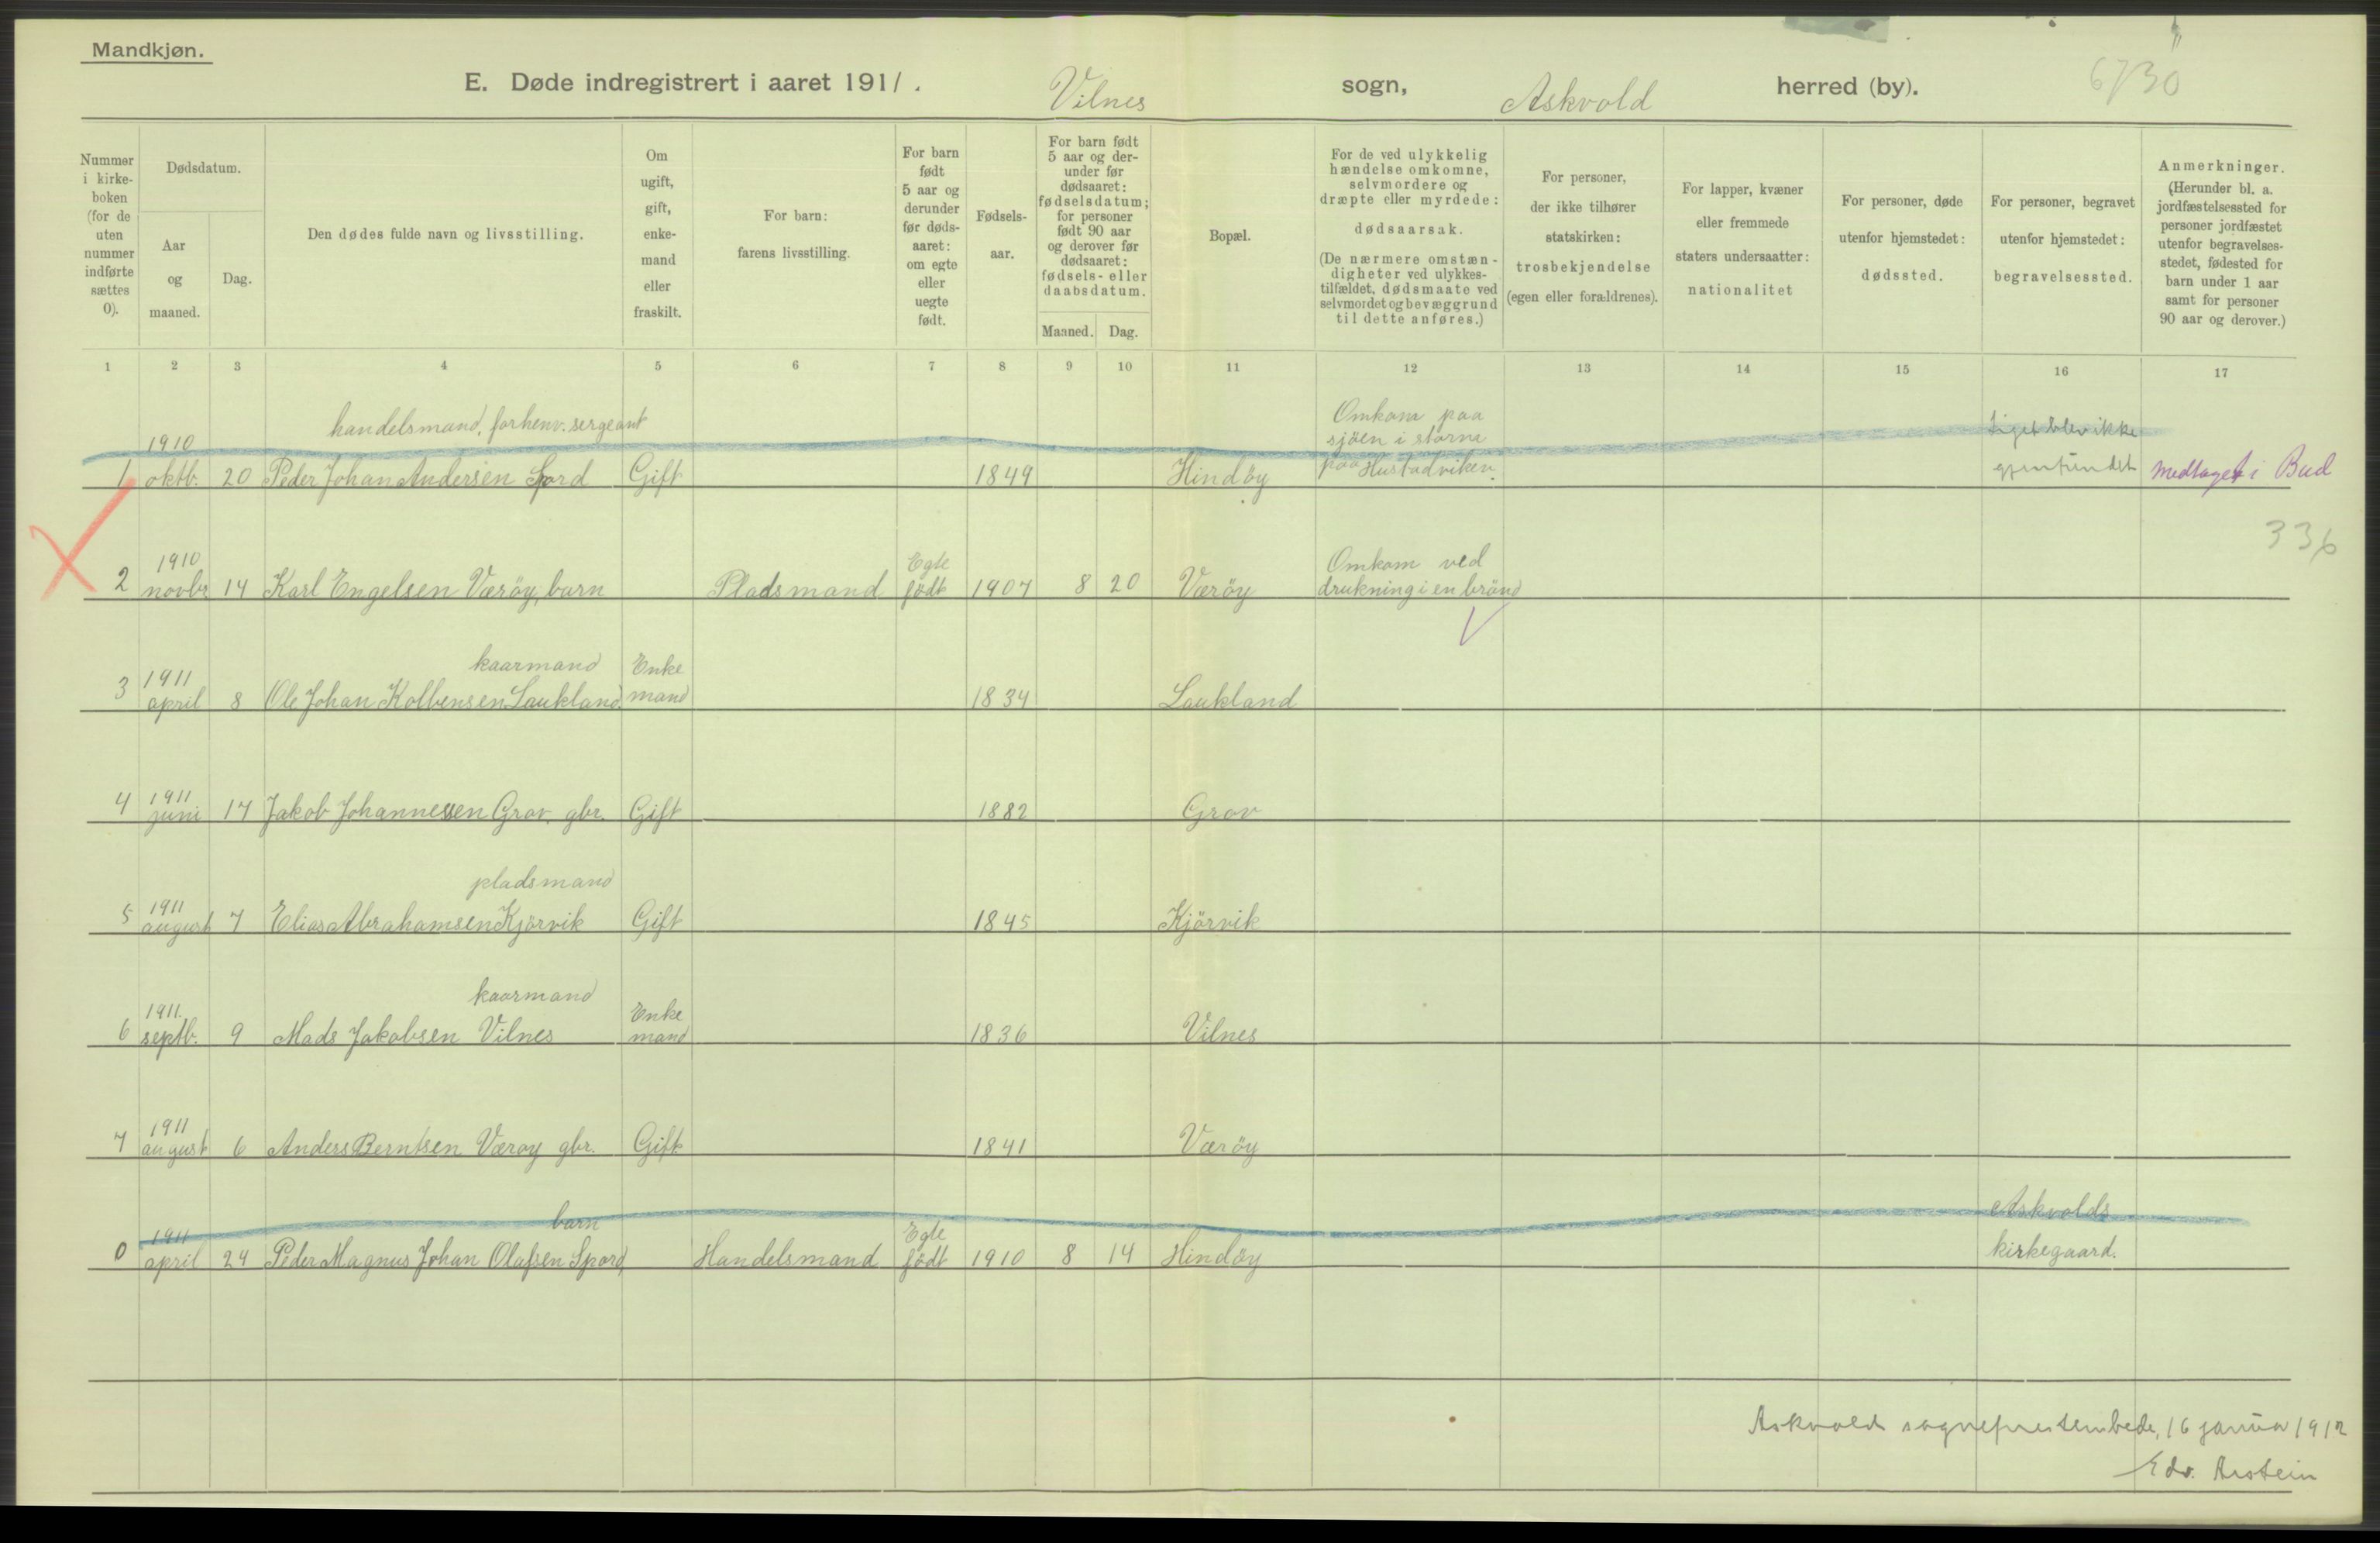 Mandkjøn.
E. Døde indregistrert i aaret 1911. Vilnes sogn, Askvold herred (by). 6730
Nummer i kirke- boken (for de uten nummer indførte sættes 0).
Dødsdatum.
Aar og maaned.
Dag.
Den dødes fulde navn og livsstilling.
Om ugift, gift, enke- mand eller fraskilt.
For barn: farens livsstilling.
For barn født 5 aar og derunder før døds- aaret: om egte eller uegte født.
Fødsels- aar.
For barn født 5 aar og der- under før dødsaaret: fødselsdatum; for personer født 90 aar og derover før dødsaaret: fødsels- eller daabsdatum.
Maaned. Dag.
Bopæl.
For de ved ulykkelig hændelse omkomne, selvmordere og dræpte eller myrdede: dødsaarsak. (De nærmere omstæn- digheter ved ulykkes- tilfældet, dødsmaate ved selvmordet og bevæggrund til dette anføres.)
For personer, der ikke tilhører statskirken: trosbekjendelse (egen eller forældrenes).
For lapper, kvæner eller fremmede staters undersaatter: nationalitet
For personer, døde utenfor hjemstedet: dødssted.
For personer, begravet utenfor hjemstedet: begravelsessted.
Anmerkninger. (Herunder bl. a. jordfæstelsessted for personer jordfæstet utenfor begravelses- stedet, fødested for barn under 1 aar samt for personer 90 aar og derover.)
1 2 3 4 5 6 7 8 9 10 11 12 13 14 15 16 17
handelsmand, forhenv. sergeant Omkom paa
1910 sjöen i storm Liget blev ikke
1 oktb. 20 Peder Johan Andersen Spord Gift 1849 Hindöy paa Hustadviken. gjenfundet medtaget i Bud
336
1910 Egte Omkom ved
2 novbr 14 Karl Engelsen Veröy, barn Pladsmand födt 1907 8 20 Veröy drukning i en brönd
kaarmand Enke
1911
3 april 8 Ole Johan Kolbensen Laukland, mand 1834 Laukland
1911
4 juni 17 Jakob Johannessen Grov, gbr. Gift 1882 Grov
pladsmand
1911
5 august 7 Elias Abrahamsen Kjörvik Gift 1845 Kjörvik
kaarmand
1911. Enke
6 septb. 9 Mads Jakobsen Vilnes mand 1836 Vilnes
1911
7 august 6 Anders Berntsen Veröy gbr. Gift 1841 Veröy
barn Askvolds
1911 Egte
0 april 24 Peder Magnus Johan Olafsen Spord, Handelsmand födt 1910 8 14 Hindöy kirkegaard.
Askvold sogneprestembede, 16 januar 1912
Edv. Arstein